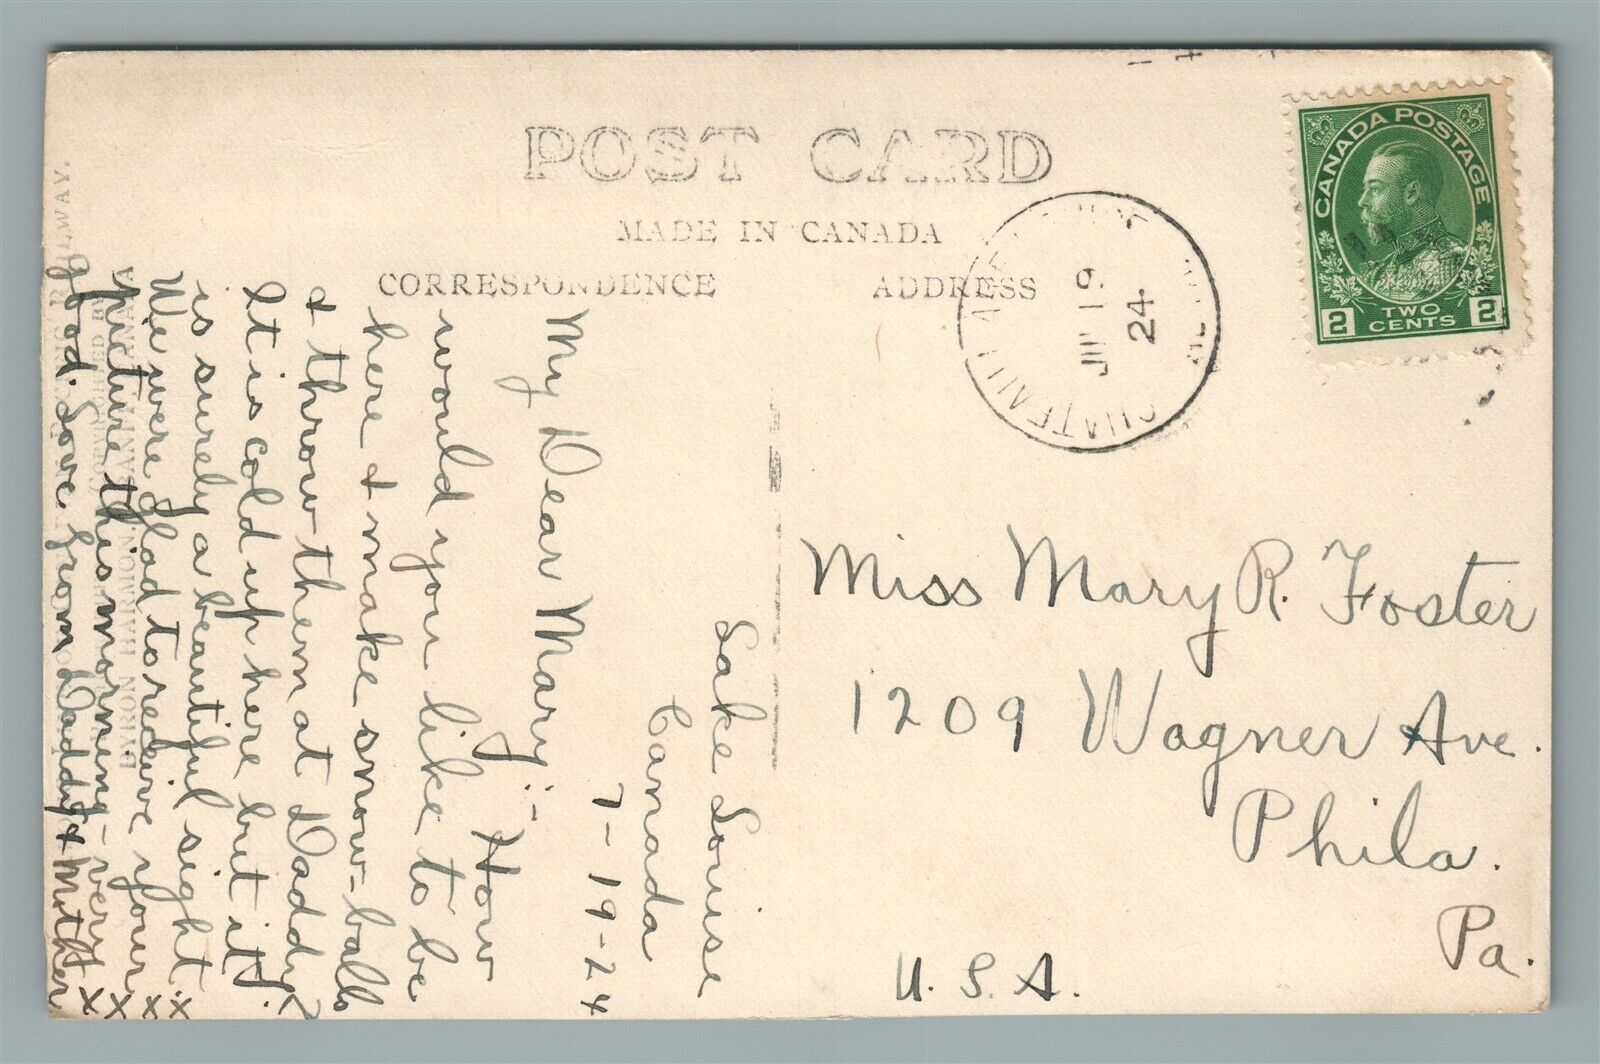 POST CARD
MADE IN CANADA
CORRESPONDENCE
ADDRESS
CANADA POSTAGE
2 TWO CENTS 2
JUL 19
24
Lake Louise
Canada
7-19-24
My Dear Mary:-
How
would you like to be
here & make snow-balls
& throw them at Daddy?
It is cold up here but it
is surely a beautiful sight.
We were glad to receive your
picture this morning - very
good. Love from Daddy & Mother
x x x x
BYRON HARMON, BANFF, CANADA
Miss Mary R. Foster
1209 Wagner Ave.
Phila.
Pa.
U.S.A.